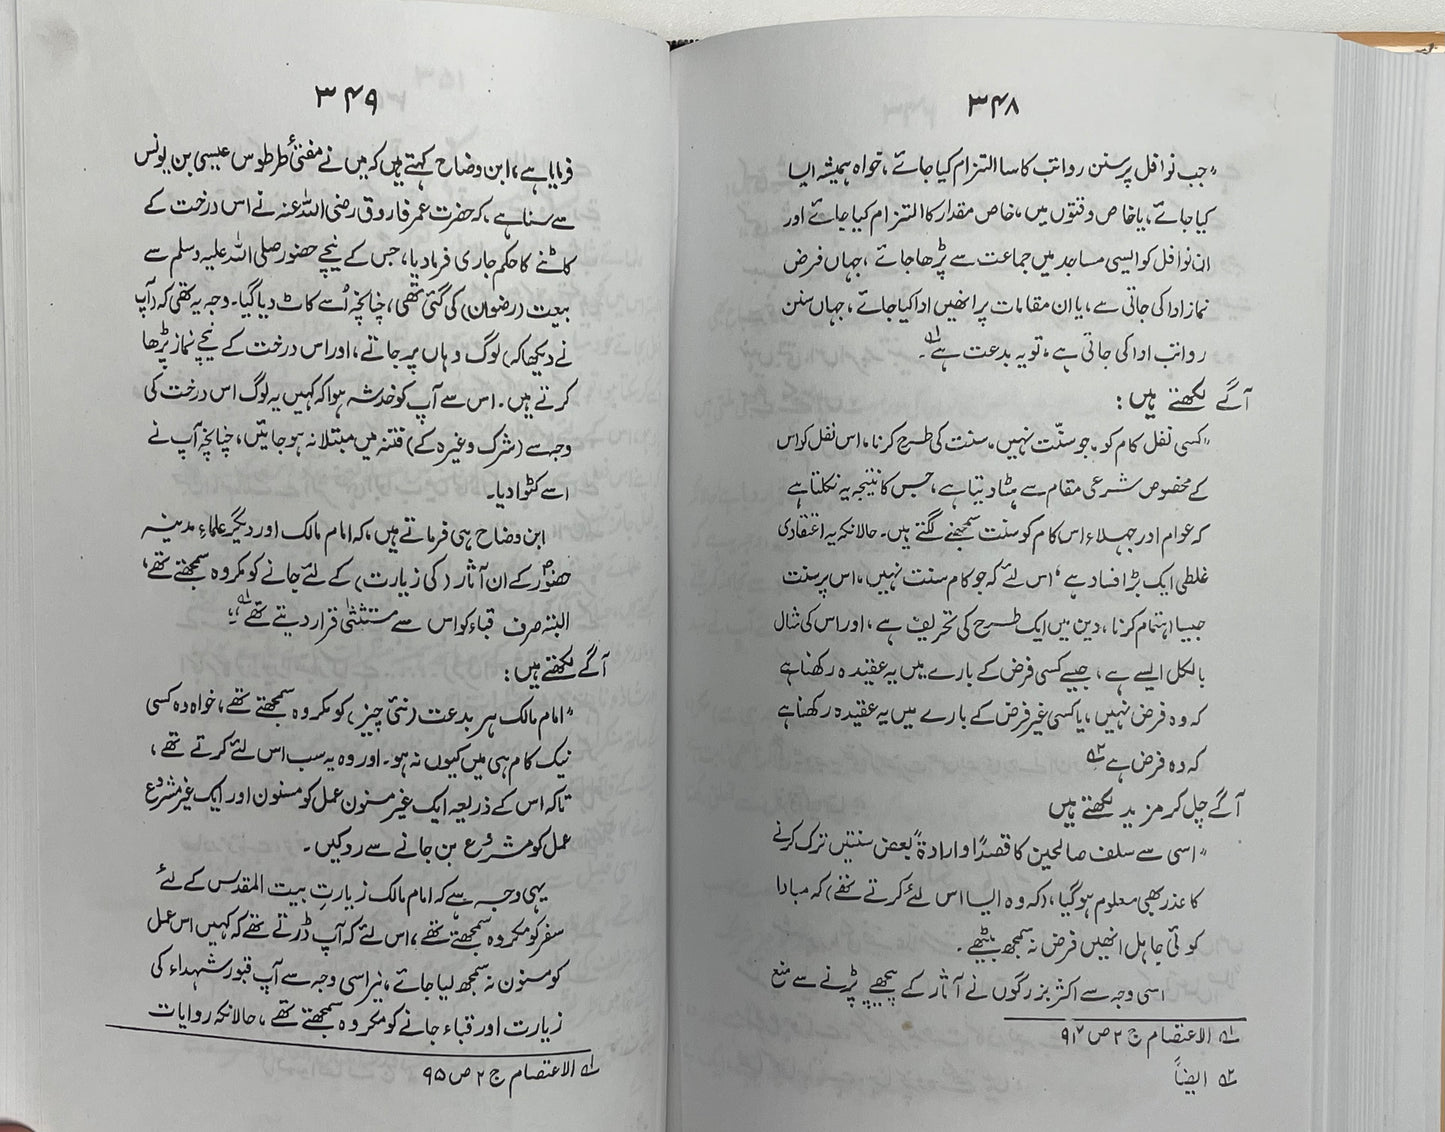 ۳۴۸
"جب نوافل پر سنن رواتب کا سا التزام کیا جائے، خواہ ہمیشہ ایسا
کیا جائے، یا خاص وقتوں میں، خاص مقدار کا التزام کیا جائے اور
ان نوافل کو ایسی مساجد میں جماعت سے پڑھا جائے، جہاں فرض
نماز ادا کی جاتی ہے، یا ان مقامات پر انھیں ادا کیا جائے، جہاں سنن
رواتب ادا کی جاتی ہے، تو یہ بدعت ہے۱؎۔
آگے لکھتے ہیں:
"کسی نفل کام کو۔ جو سنّت نہیں۔ سنت کی طرح کرنا، اس نفل کو اس
کے مخصوص شرعی مقام سے ہٹا دیتا ہے، جس کا نتیجہ یہ نکلتا ہے
کہ عوام اور جہلاء اس کام کو سنت سمجھنے لگتے ہیں۔ حالانکہ یہ اعتقادی
غلطی ایک بڑا فساد ہے، اس لئے کہ جو کام سنت نہیں، اس پر سنت
جیسا اہتمام کرنا، دین میں ایک طرح کی تحریف ہے، اور اس کی مثال
بالکل ایسے ہے، جیسے کسی فرض کے بارے میں یہ عقیدہ رکھنا ہے
کہ وہ فرض نہیں، یا کسی غیر فرض کے بارے میں یہ عقیدہ رکھنا ہے
کہ وہ فرض ہے۲؎
آگے چل کر مزید لکھتے ہیں
"اسی سے سلف صالحین کا قصداً و ارادۃً بعض سنتیں ترک کرنے
کا عذر بھی معلوم ہو گیا، (کہ وہ ایسا اس لئے کرتے تھے) کہ مبادا
کوئی جاہل انھیں فرض نہ سمجھ بیٹھے۔
اسی وجہ سے اکثر بزرگوں نے آثار کے پیچھے پڑنے سے منع
۱؎ الاعتصام ج ۲ ص ۹۴
۲؎ ایضاً
۳۴۹
فرمایا ہے، ابن وضاح کہتے ہیں کہ میں نے مفتیٔ طرطوس عیسیٰ بن یونس
سے سنا ہے، کہ حضرت عمر فاروق رضی اللہ عنہ نے اس درخت کے
کاٹنے کا حکم جاری فرما دیا، جس کے نیچے حضور صلی اللہ علیہ وسلم سے
بیعت (رضوان) کی گئی تھی، چنانچہ اُسے کاٹ دیا گیا۔ وجہ یہ تھی کہ (آپ
نے دیکھا کہ) لوگ وہاں پر جاتے، اور اس درخت کے نیچے نماز پڑھا
کرتے ہیں۔ اس سے آپ کو خدشہ ہوا کہ کہیں یہ لوگ اس درخت کی
وجہ سے (شرک وغیرہ کے) فتنہ میں مبتلا نہ ہو جائیں، چنانچہ آپ نے
اسے کٹوا دیا۔
ابن وضاح ہی فرماتے ہیں، کہ امام مالک اور دیگر علماءِ مدینہ
حضورؐ کے ان آثار (کی زیارت) کے لئے جانے کو مکروہ سمجھتے تھے،
البتہ صرف قباء کو اس سے مستثنیٰ قرار دیتے تھے۱؎"
آگے لکھتے ہیں:
"امام مالک ہر بدعت (نئی چیز) کو مکروہ سمجھتے تھے، خواہ وہ کسی
نیک کام ہی میں کیوں نہ ہو۔ اور وہ یہ سب اس لئے کرتے تھے،
تاکہ اس کے ذریعہ ایک غیر مسنون عمل کو مسنون اور ایک غیر مشروع
عمل کو مشروع بن جانے سے روکیں۔
یہی وجہ ہے کہ امام مالک زیارتِ بیت المقدس کے لئے
سفر کو مکروہ سمجھتے تھے، اس لئے کہ آپ ڈرتے تھے کہ کہیں اس عمل
کو مسنون نہ سمجھ لیا جائے، نیز اسی وجہ سے آپ قبورِ شہداء کی
زیارت اور قباء جانے کو مکروہ سمجھتے تھے، حالانکہ روایات
۱؎ الاعتصام ج ۲ ص ۹۵